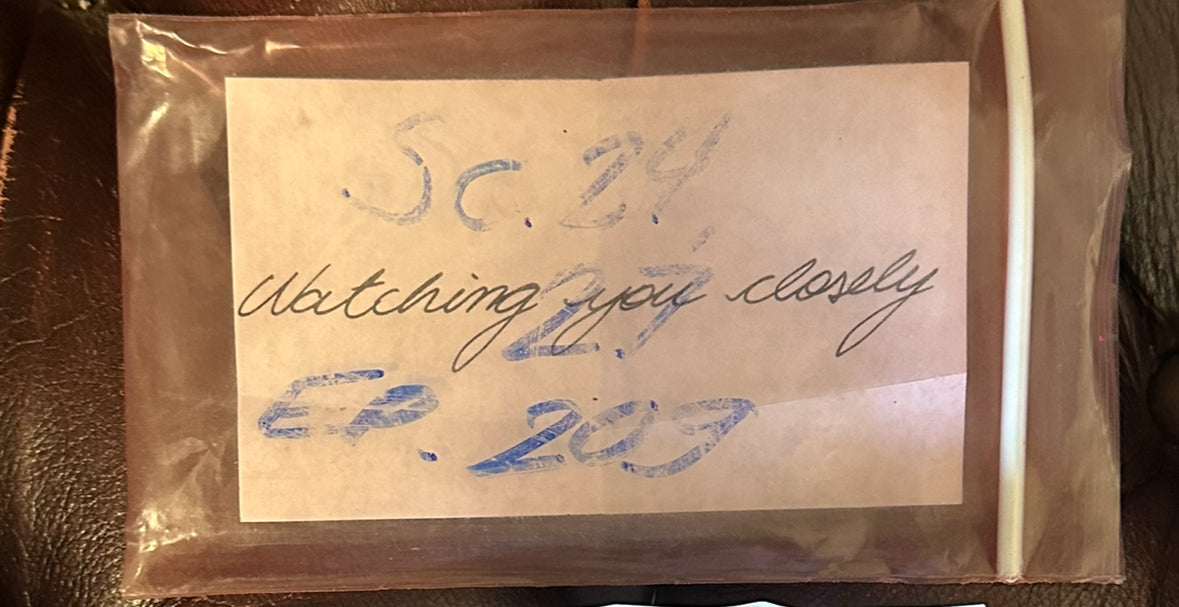 Sc. 24
27
Watching you closely
EP. 209